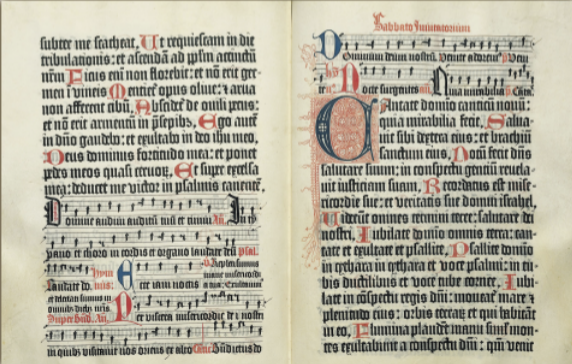 subter me scateat. Ut requiescam in die
tribulationis: et ascendā ad ppſm accinctū
nrm̄ Ficus eni̅ non florebit: et nō erit ger-
men ī vineis Mentiet̄ opus olive: et arva
non afferent cibū. Abscidet̄ de ovili pecus:
et nō erit armentū in p̄sepibs. Ego autē
in dn̄o gaudebo: et exultabo in deo ihu meo.
Deus dominus fortitudo mea: et ponet
pedes meos quasi cervorū. Et super excelsa
mea: deducet me victor in psalmis canentē.
Domine audivi auditū tuū et timui An̄. In ty
pano et choro in cordis et organo laudate deū psal.
Laudate dō.
in quib9 visitavit nos oriens ex alto
Sabbato Inuitatorium
Dominum deum nostrū. Venite adorem9. Veni
Nocte surgentes an̄. Quia mirabilia Cāta
Cantate domīo canticū novū:
quia mirabilia fecit. Salva-
vit sibi dextera eius: et brachiū
sanctum eius. Notū fecit dn̄s
salutare suum: in cōspectu gentiū revela-
vit iusticiam suam. Recordatus est mise-
ricordie sue: et veritatis sue domui israhel.
Viderūt omnes termini terre: salutare dei
nostri. Iubilate domīo omnis terra: can-
tate et exultate et psallite. Psallite domīo
in cythara in cythara et voce psalmi: in tu-
bis ductilibus et voce tube cornee. Iubi-
late in cōspectu regis dn̄i: moveat̄ mare et
plenitudo eius: orbis terrarū et qui habitāt
in eo. Flumina plaudēt manu simul mon-
tes exultabunt a conspectu dn̄i: qm̄ venit